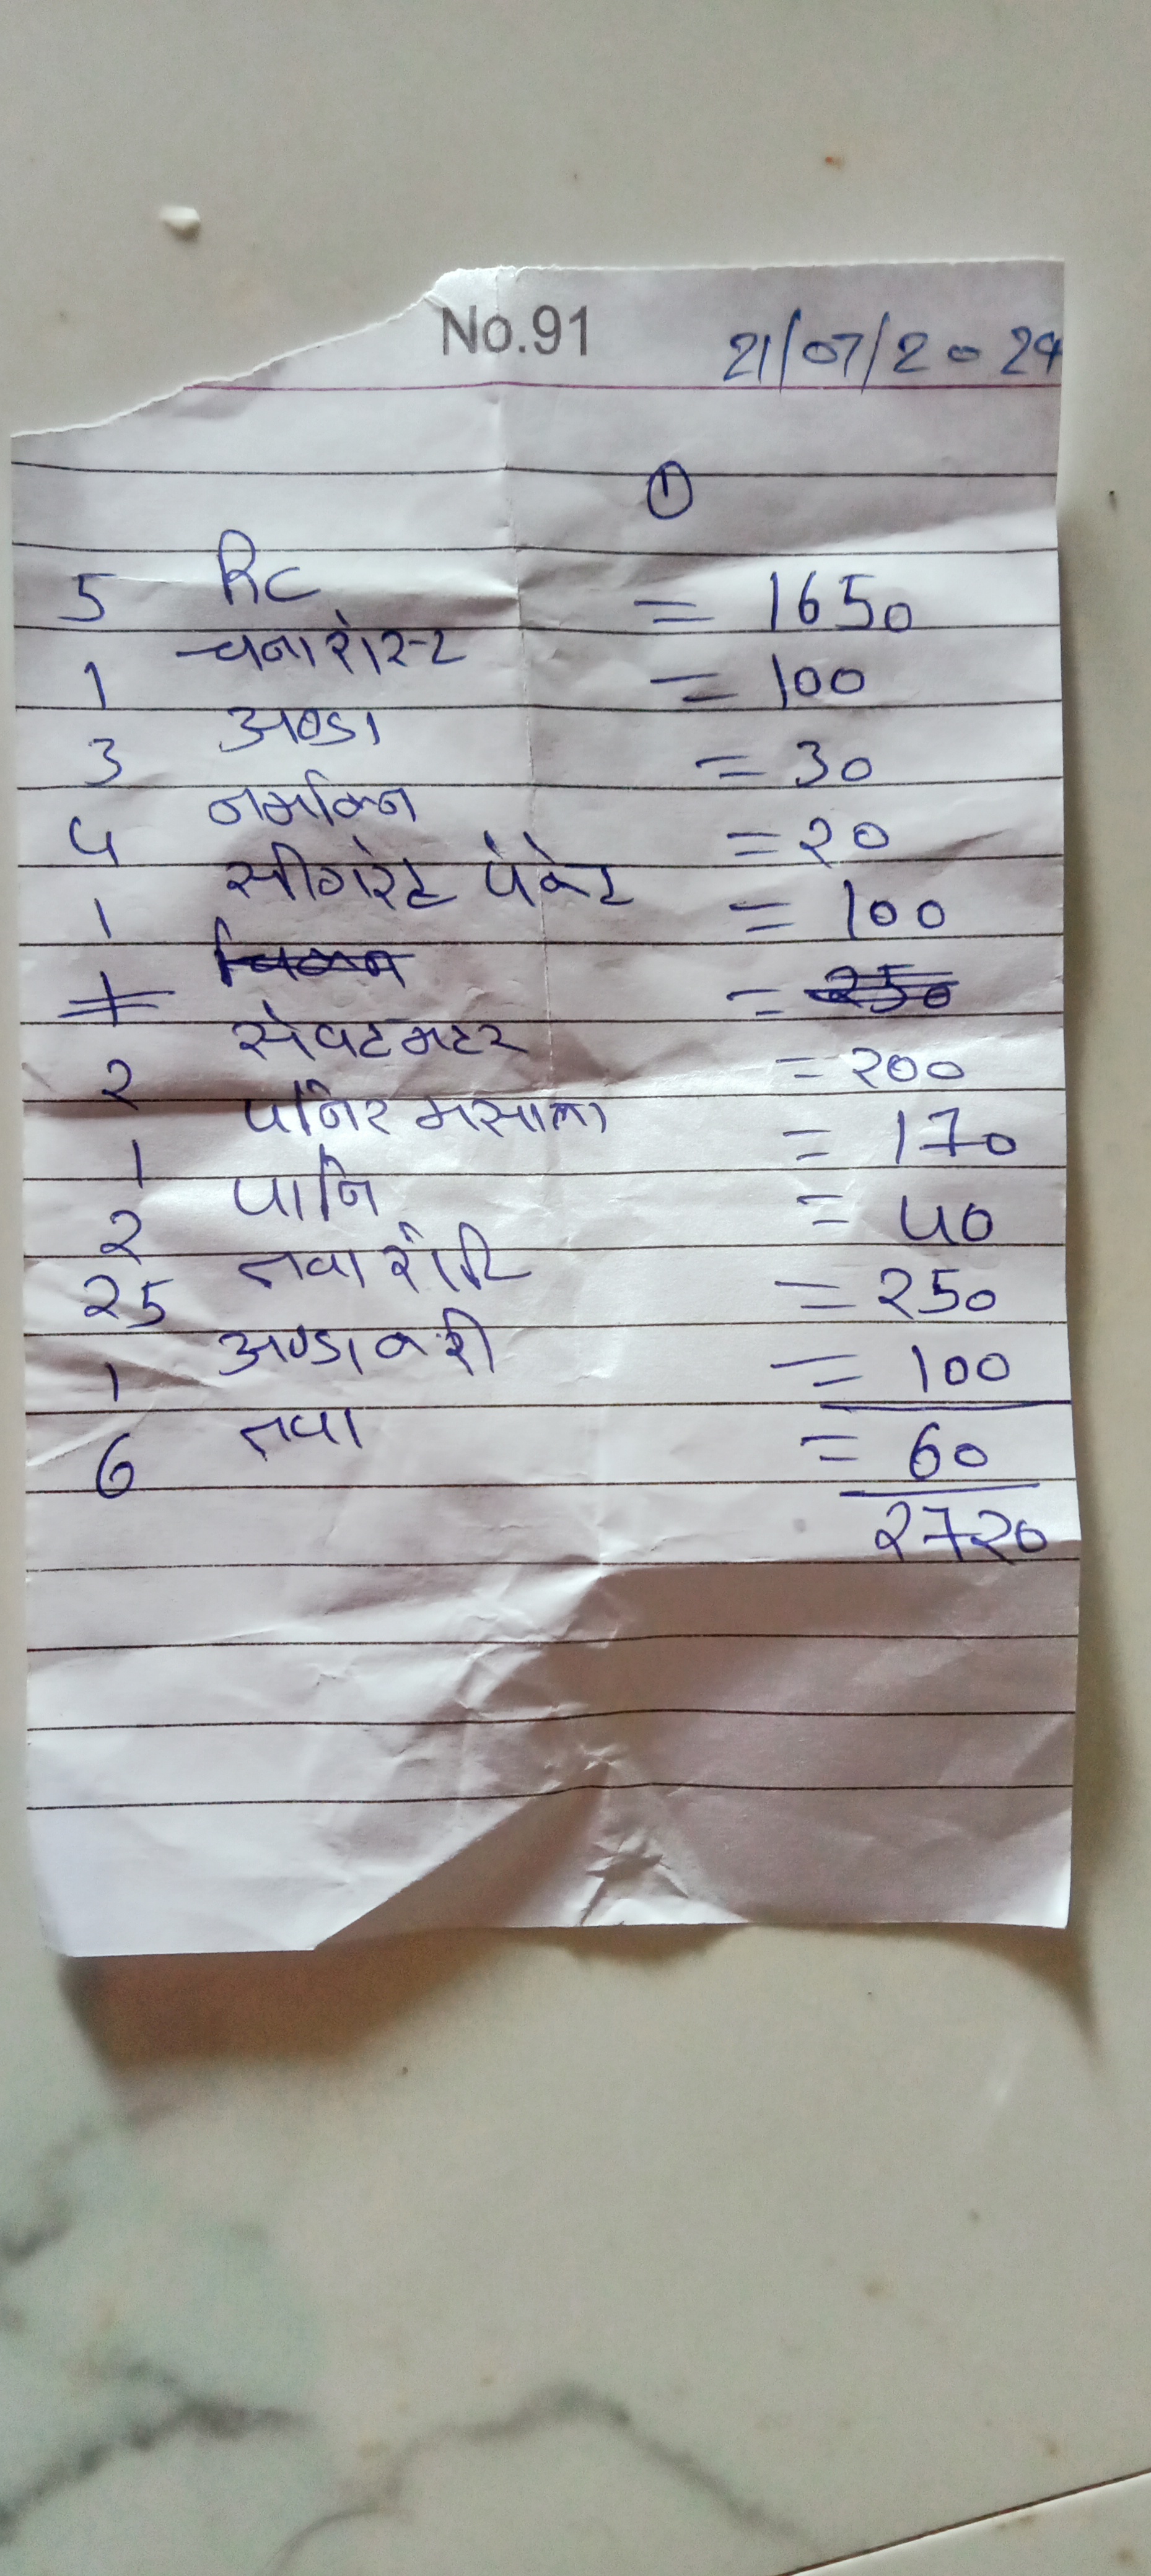 No.91 21/07/2024
①
5 RC = 1650
1 चना रोस्ट = 100
3 अण्डा = 30
4 नमकिन = 20
1 सीगरेट पेकेट = 100
1 चिकन = 250
2 सेवटमटर = 200
1 पनिर मसाला = 170
2 पानि = 40
25 तवा रोटि = 250
1 अण्डा करी = 100
6 तवा = 60
2720